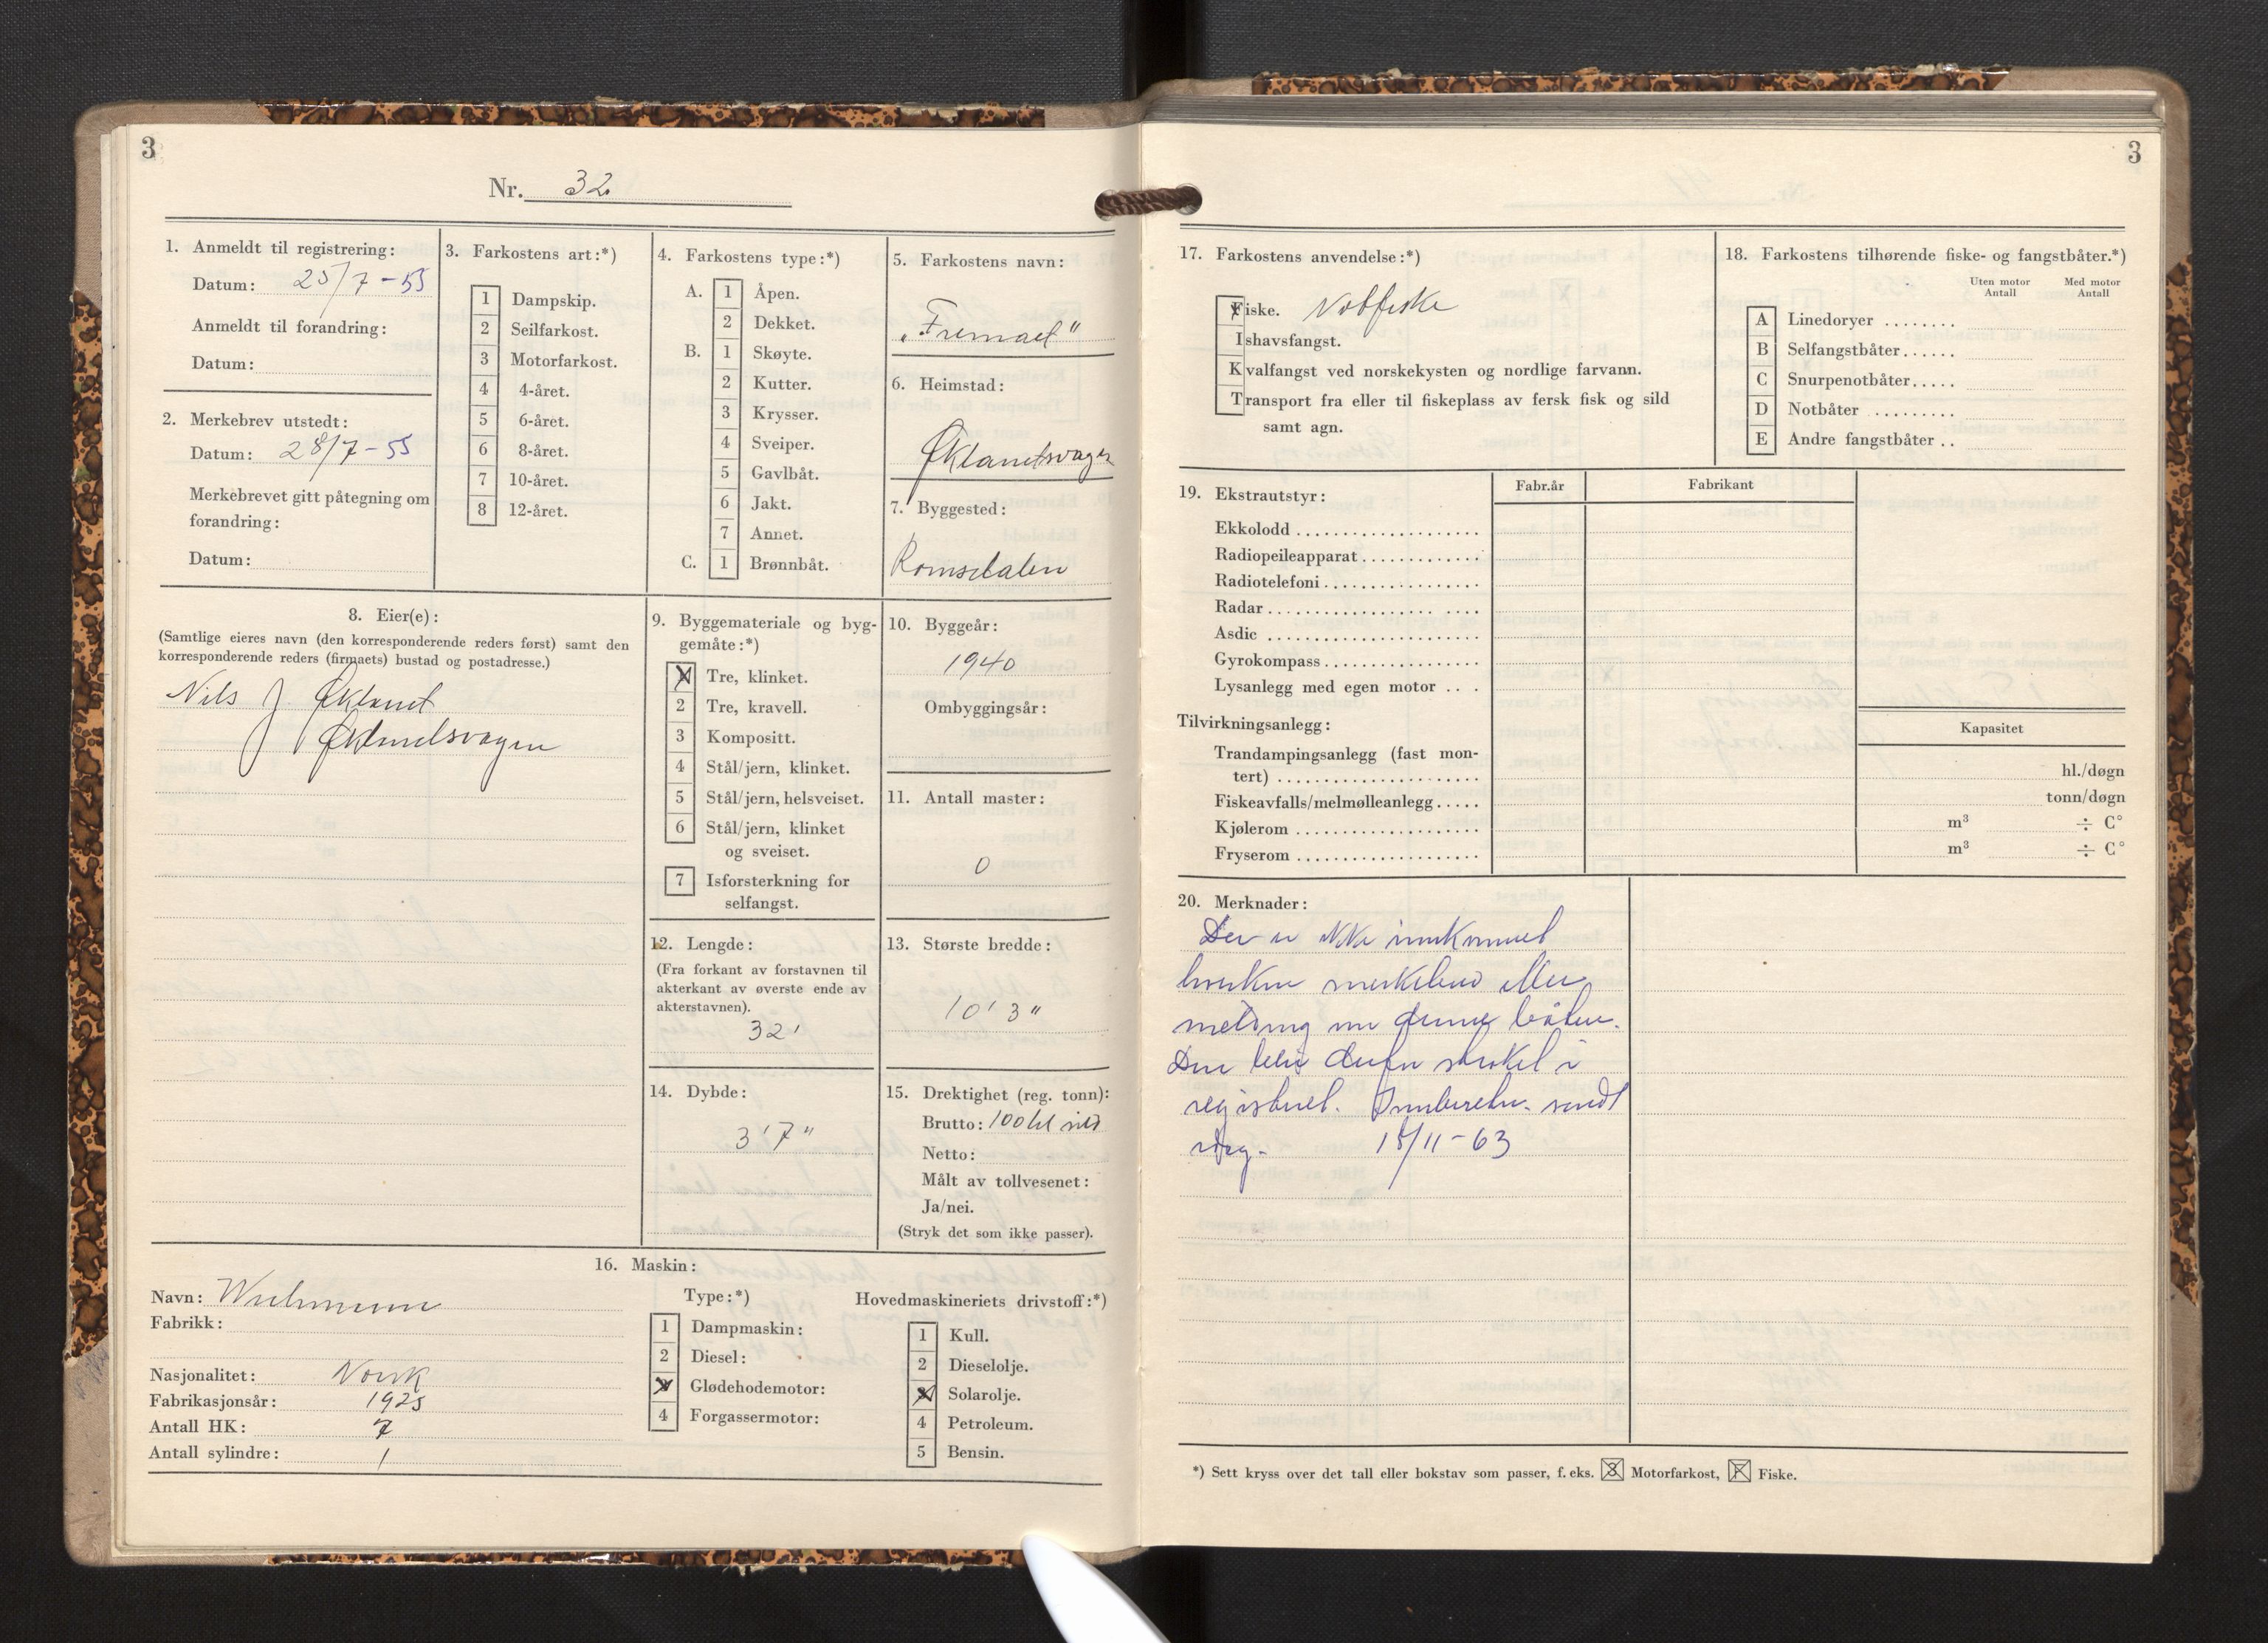 3
Nr. 32
1. Anmeldt til registrering:
Datum: 25/7-55
Anmeldt til forandring:
Datum:
2. Merkebrev utstedt:
Datum: 28/7-55
Merkebrevet gitt påtegning om
forandring:
Datum:
3. Farkostens art:*)
1 Dampskip.
2 Seilfarkost.
3 Motorfarkost.
4 4-året.
5 6-året.
6 8-året.
7 10-året.
8 12-året.
4. Farkostens type:*)
A. 1 Åpen.
2 Dekket.
B. 1 Skøyte.
2 Kutter.
3 Krysser.
4 Sveiper.
5 Gavlbåt.
6 Jakt.
7 Annet.
C. 1 Brønnbåt.
5. Farkostens navn:
„Fremad"
6. Heimstad:
Øklandsvågen
7. Byggested:
Romsdalen
8. Eier(e):
(Samtlige eieres navn (den korresponderende reders først) samt den
korresponderende reders (firmaets) bustad og postadresse.)
Nils J. Økland
Øklandsvågen
9. Byggemateriale og byg-
gemåte:*)
1 Tre, klinket.
2 Tre, kravell.
3 Kompositt.
4 Stål/jern, klinket.
5 Stål/jern, helsveiset.
6 Stål/jern, klinket
og sveiset.
7 Isforsterkning for
selfangst.
10. Byggeår:
1940
Ombyggingsår:
11. Antall master:
0
12. Lengde:
(Fra forkant av forstavnen til
akterkant av øverste ende av
akterstavnen).
32'
13. Største bredde:
10' 3"
14. Dybde:
3' 7"
15. Drektighet (reg. tonn):
Brutto: 100 hl sild
Netto:
Målt av tollvesenet:
Ja/nei.
(Stryk det som ikke passer).
16. Maskin:
Navn: Wichmann
Fabrikk:
Nasjonalitet: Norsk
Fabrikasjonsår: 1925
Antall HK: 7
Antall sylindre: 1
Type:*)
1 Dampmaskin:
2 Diesel:
3 Glødehodemotor:
4 Forgassermotor:
Hovedmaskineriets drivstoff:*)
1 Kull.
2 Dieselolje.
3 Solarolje.
4 Petroleum.
5 Bensin.
3
17. Farkostens anvendelse:*)
Fiske. Notfiske
Ishavsfangst.
Kvalfangst ved norskekysten og nordlige farvann.
Transport fra eller til fiskeplass av fersk fisk og sild
samt agn.
18. Farkostens tilhørende fiske- og fangstbåter.*)
Uten motor Antall
Med motor Antall
A Linedoryer ........
B Selfangstbåter......
C Snurpenotbåter.....
D Notbåter .........
E Andre fangstbåter ..
19. Ekstrautstyr:
Fabr.år
Fabrikant
Ekkolodd ....................
Radiopeileapparat.............
Radiotelefoni.................
Radar.................. ....
Asdic .......................
Gyrokompass.................
Lysanlegg med egen motor ...
Tilvirkningsanlegg:
Kapasitet
Trandampingsanlegg (fast mon-
tert) ...................... hl./døgn
Fiskeavfalls/melmølleanlegg..... tonn/døgn
Kjølerom .................... m³ ÷ C°
Fryserom .................... m³ ÷ C°
20. Merknader:
Det er ikke innkommet
hverken merkebrev eller
melding om denne båten.
Den blir derfor strøket i
registeret. Innberetn. sendt
idag. 15/11-63
*) Sett kryss over det tall eller bokstav som passer, f. eks. 3 Motorfarkost, F Fiske.